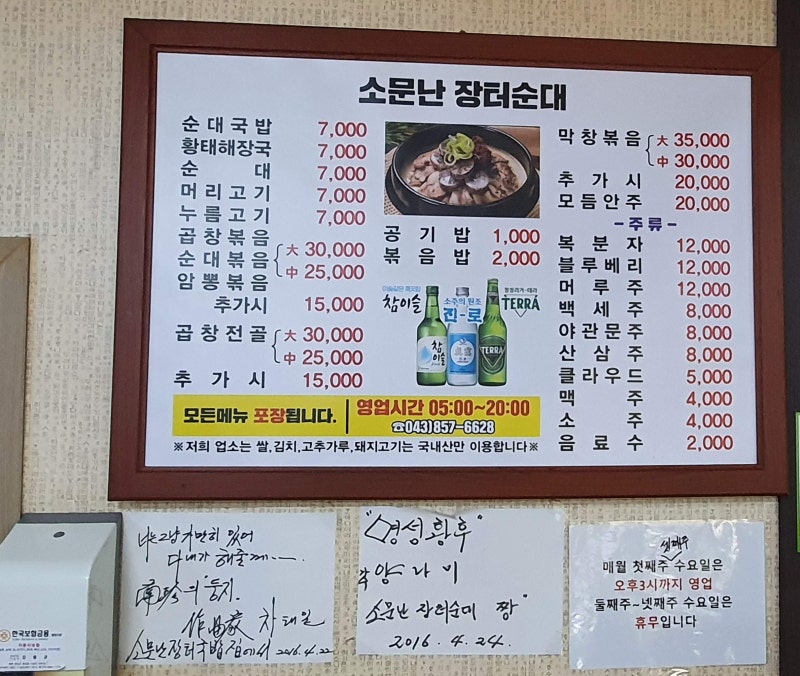 소문난 장터순대
순대국밥 7,000
황태해장국 7,000
순 대 7,000
머리고기 7,000
누름고기 7,000
곱창볶음
순대볶음 大 30,000
암뽕볶음 中 25,000
추가시 15,000
곱창전골 大 30,000
中 25,000
추 가 시 15,000
공 기 밥 1,000
볶 음 밥 2,000
이슬같은 깨끗함
참이슬
소주의 원조
진-로
청정라거-테라
TERRA
참이슬
眞露
TERRA
모든메뉴 포장됩니다.
영업시간 05:00~20:00
☎043)857-6628
※저희 업소는 쌀,김치,고추가루,돼지고기는 국내산만 이용합니다※
막창볶음 大 35,000
中 30,000
추 가 시 20,000
모듬안주 20,000
-주류-
복 분 자 12,000
블루베리 12,000
머 루 주 12,000
백 세 주 8,000
야관문주 8,000
산 삼 주 8,000
클라우드 5,000
맥 주 4,000
소 주 4,000
음 료 수 2,000
너는 그냥 가만히 있어
다 내가 해줄께
의 "둥지"
作曲家 차태일
소문난장터국밥집에서 2016.4.22
"명성황후"
양 라 미
소문난 장터순대 짱
2016. 4. 24.
셋째주
매월 첫째주 수요일은
오후3시까지 영업
둘째주~넷째주 수요일은
휴무입니다
한국보험금융